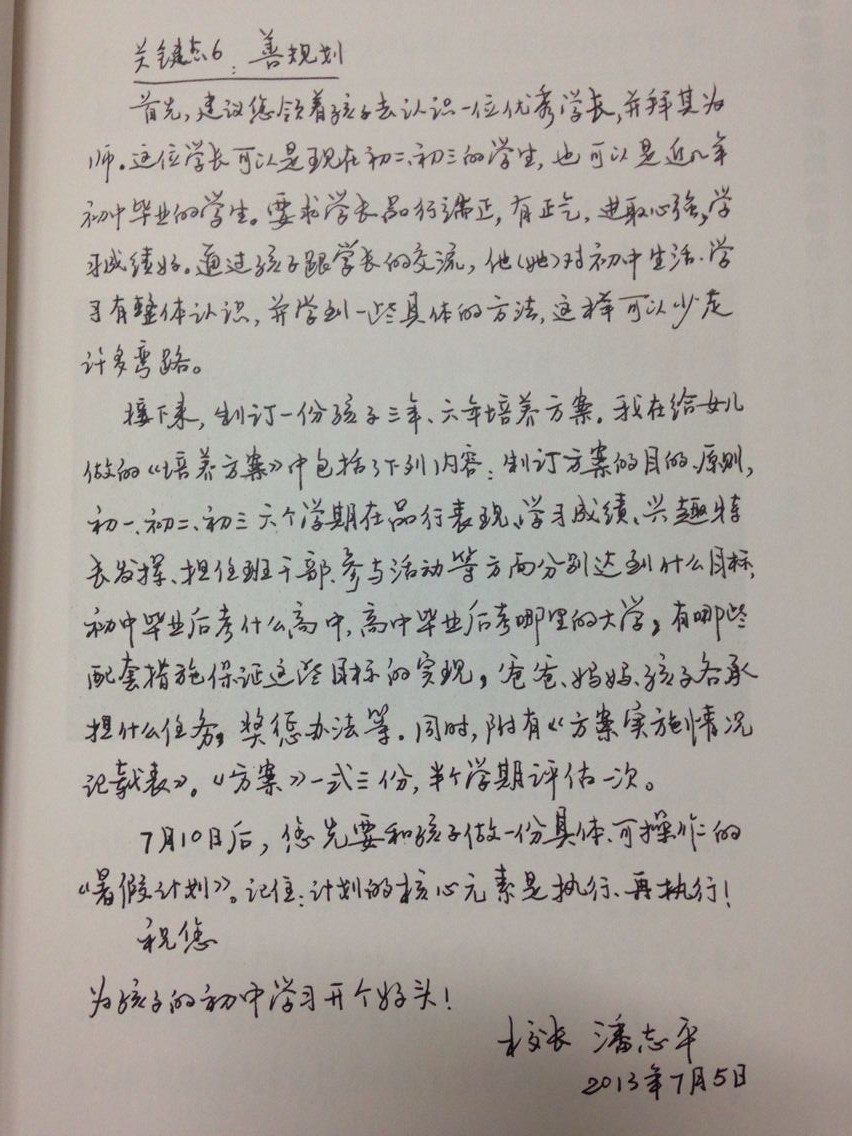 关键点6：善规划
首先，建议您领着孩子去认识一位优秀学长，并拜其为
师。这位学长可以是现在初二、初三的学生，也可以是近几年
初中毕业的学生。要求学长品行端正，有正气，进取心强，学
习成绩好。通过孩子跟学长的交流，他（她）对初中生活、学
习有整体认识，并学到一些具体的方法，这样可以少走
许多弯路。
接下来，制订一份孩子三年、六年培养方案。我在给女儿
做的《培养方案》中包括了下列内容：制订方案的目的、原则，
初一、初二、初三六个学期在品行表现、学习成绩、兴趣特
长发挥、担任班干部、参与活动等方面分别达到什么目标，
初中毕业后考什么高中，高中毕业后考哪里的大学，有哪些
配套措施保证这些目标的实现，爸爸、妈妈、孩子各承
担什么任务，奖惩办法等。同时，附有《方案实施情况
记载表》。《方案》一式三份，半个学期评估一次。
7月10日后，您先要和孩子做一份具体、可操作的
《暑假计划》。记住：计划的核心元素是执行、再执行！
祝您
为孩子的初中学习开个好头！
校长 潘志平
2013年7月5日